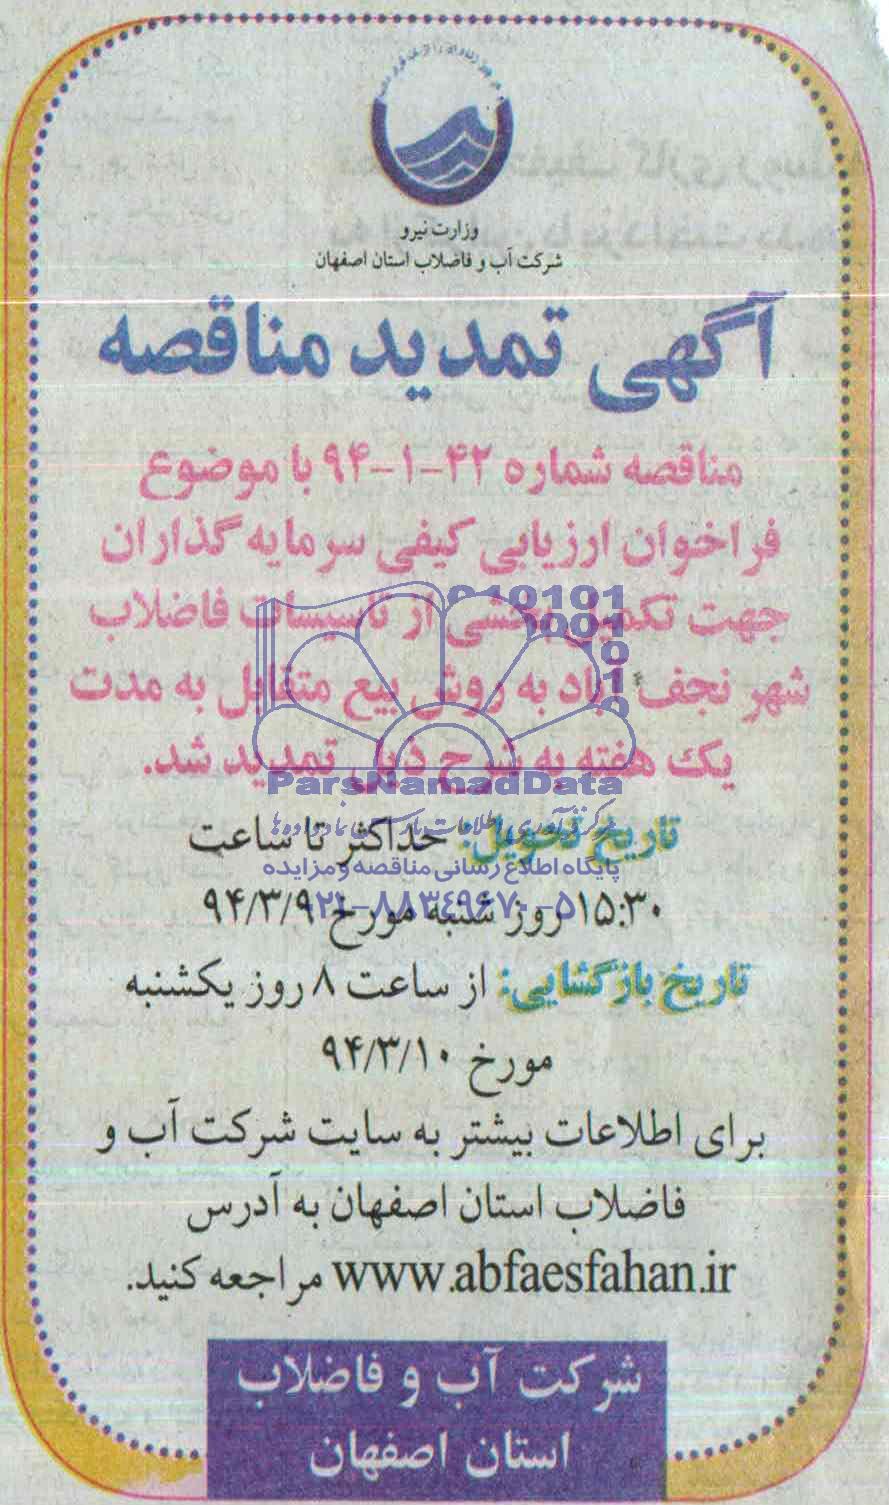 وزارت نیرو
شرکت آب و فاضلاب استان اصفهان
آگهی تمدید مناقصه
مناقصه شماره ۴۲-۱-۹۴ با موضوع
فراخوان ارزیابی کیفی سرمایه گذاران
جهت تکمیل بخشی از تاسیسات فاضلاب
شهر نجف آباد به روش بیع متقابل به مدت
یک هفته به شرح ذیل تمدید شد.
ParsNamadData
تاریخ تحویل: حداکثر تا ساعت
پایگاه اطلاع رسانی مناقصه و مزایده
۱۵:۳۰ روز شنبه مورخ ۹۴/۳/۹
۰۲۱-۸۸۳۴۹۶۷۰-۵
تاریخ بازگشایی: از ساعت ۸ روز یکشنبه
مورخ ۹۴/۳/۱۰
برای اطلاعات بیشتر به سایت شرکت آب و
فاضلاب استان اصفهان به آدرس
www.abfaesfahan.ir مراجعه کنید.
شرکت آب و فاضلاب
استان اصفهان